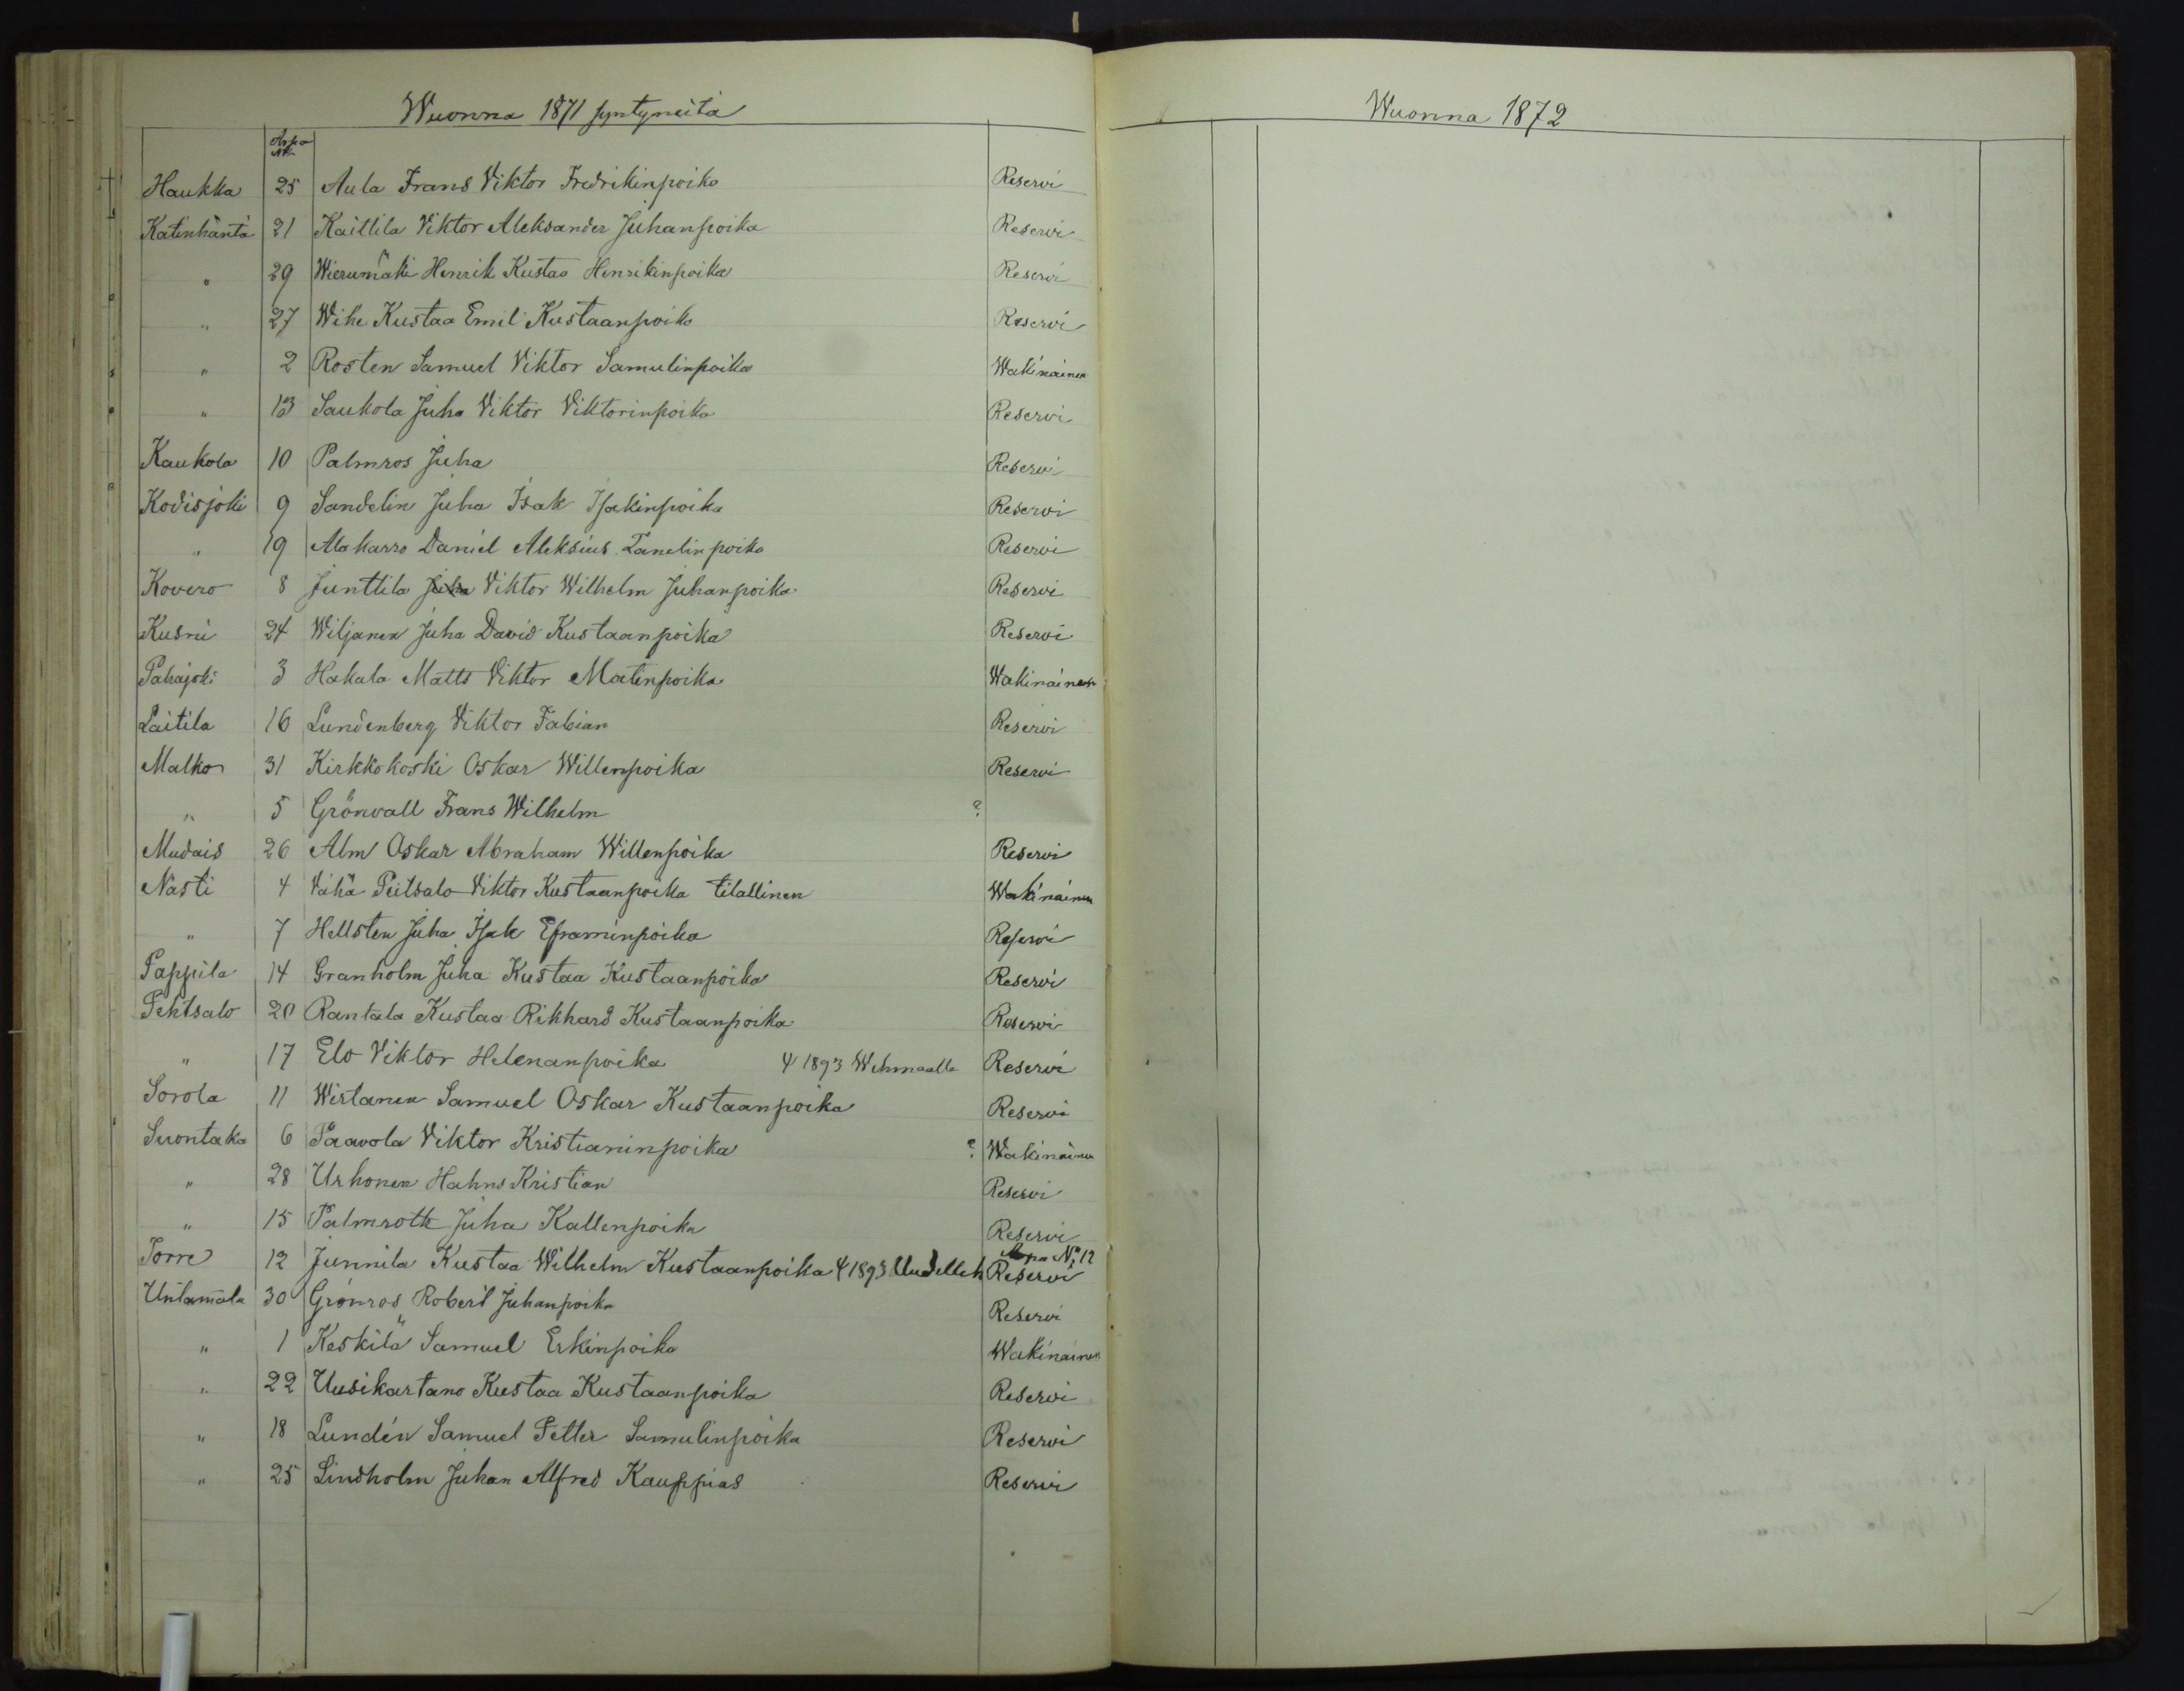 Wuonna 1871 syntyneitä
Arpa
Haukka 25 Aula Frans Viktor Fredrikinpoika Reservi
Katinhäntä 21 Kaittila Viktor Aleksander Juhanpoika Reservi
" 29 Wierumäki Henrik Kustaa Henrikinpoika Reservi
" 27 Wihe Kustaa Emil Kustaanpoika Reservi
" 2 Rosten Samuel Viktor Samulinpoika Wakinainen
" 13 Saukola Juha Viktor Viktorinpoika Reservi
Kaukola 10 Palmros Juha Reservi
Kodisjoki 9 Sandelin Juha Isak Isakinpoika Reservi
" 19 Alakarro Daniel Aleksius Tanelinpoika Reservi
Kovero 8 Junttila Juha Viktor Wilhelm Juhanpoika Reservi
Kusni 24 Wiljanen Juha David Kustaanpoika Reservi
Pahajoki 3 Hakala Matts Viktor Matinpoika Wakinainen
Laitila 16 Lundenberg Viktor Fabian Reservi
Malko 31 Kirkkokoski Oskar Willenpoika Reservi
" 5 Grönvall Frans Wilhelm ?
Mudais 26 Alm Oskar Abraham Willenpoika Reservi
Nästi 4 Vähä Peitsalo Viktor Kustaanpoika tilallinen Wakinainen
" 7 Hellsten Juha Isak Eframinpoika Reservi
Pappila 14 Granholm Juha Kustaa Kustaanpoika Reservi
Pehtsalo 20 Rantala Kustaa Rikhard Kustaanpoika Reservi
" 17 Elo Viktor Helenanpoika 4 1893 Wehmaalle Reservi
Sorola 11 Wirtanen Samuel Oskar Kustaanpoika Reservi
Suontaka 6 Paavola Viktor Kristianinpoika ? Wakinainen
" 28 Urhonen Hahns Kristian Reservi
" 15 Palmroth Juha Kallenpoika Reservi
Arpa No 12
Torre 12 Junnila Kustaa Wilhelm Kustaanpoika 4 1893 Reservi
Untamala 30 Grönros Robert Juhanpoika Reservi
" 1 Keskilä Samuel Erkinpoika Wakinainen
" 22 Uusikartano Kustaa Kustaanpoika Reservi
" 18 Lundén Samuel Petter Samulinpoika Reservi
" 25 Lindholm Juhan Alfred Kauppias Reservi
Wuonna 1872